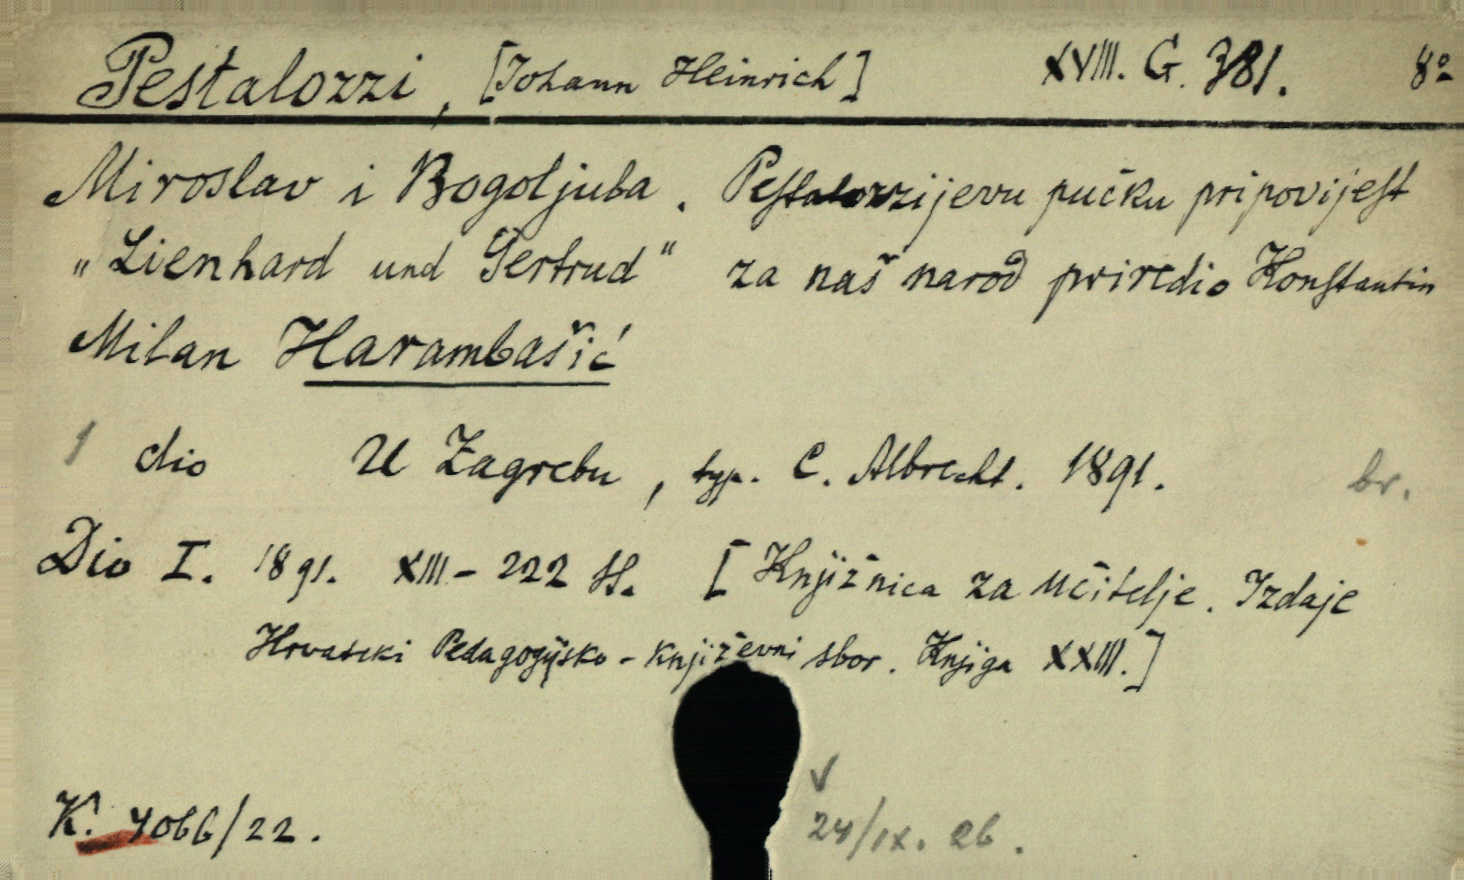 Pestalozzi, [Johann Heinrich] XVIII. G. 381. 8º
Miroslav i Bogoljuba. Pestalozzijevu pučku pripovijest
„Lienhard und Gertrud" za naš narod priredio Konstantin
Milan Harambašić
1 dio U Zagrebu, typ. C. Albrecht. 1891. br.
Dio I. 1891. XIII - 222 st. [Knjižnica za učitelje. Izdaje
Hrvatski Pedagogijsko - književni sbor. Knjiga XXIII.]
K. 4066/22.
24/IX. 26.